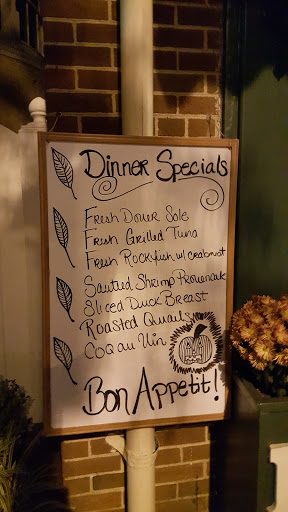 Dinner Specials
Fresh Dover Sole
Fresh Grilled Tuna
Fresh Rockfish w/ crabmeat
Sautéed Shrimp Provencale
Sliced Duck Breast
Roasted Quails
Coq au Vin
Bon Appetit!